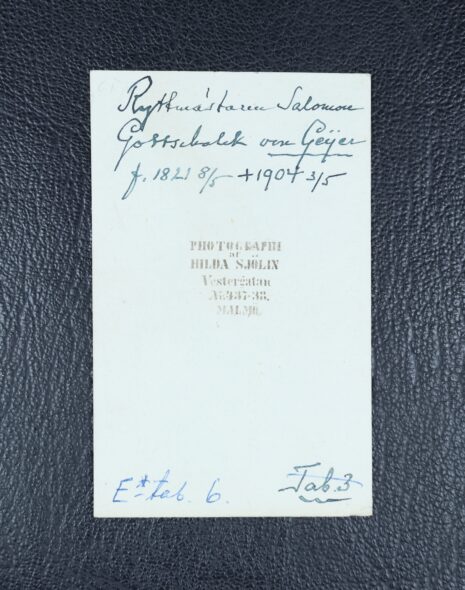 Ryttmästaren Salomon
Gottschalck von Geÿer
f. 1821 8/5 +1904 3/5
PHOTOGRAPHI
af
HILDA SJÖLIN
Vestergatan
No 437-38.
MALMÖ.
Tab. 3
E** tab. 6.